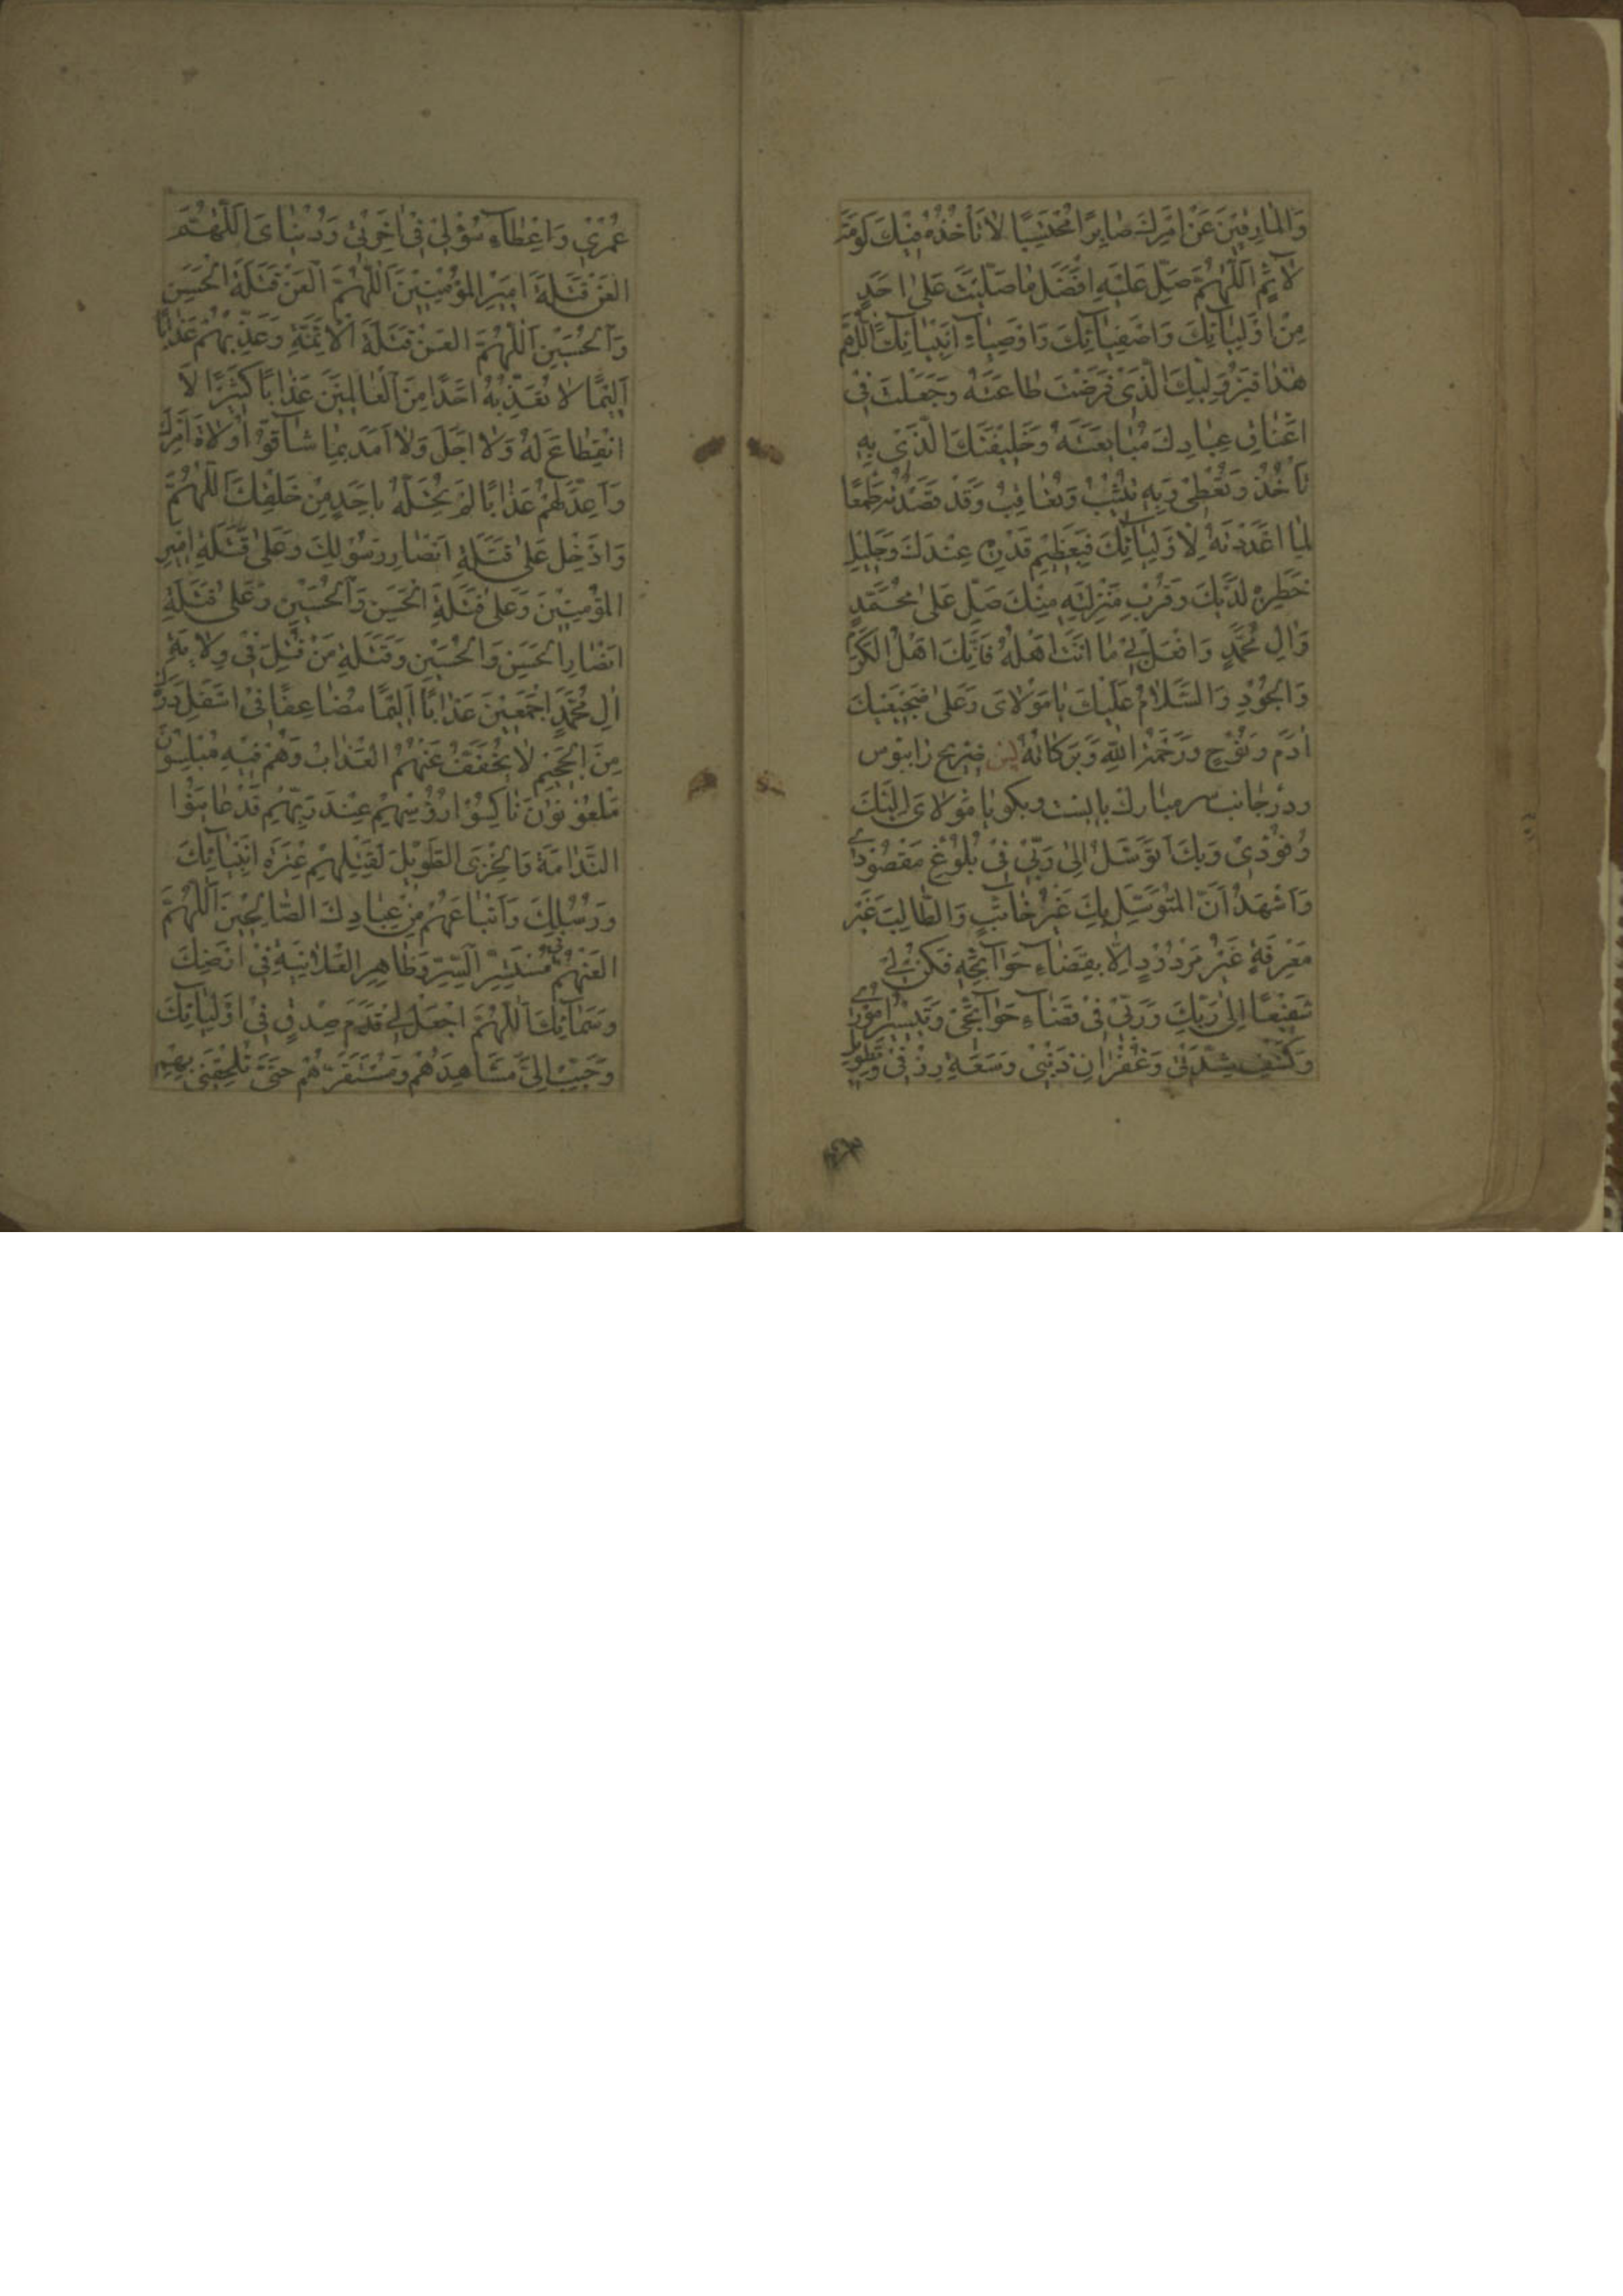 وَالْمارِقينَ عَنْ اَمْرِكَ صابِرًا مُحْتَسِبًا لا تَأْخُذُهُ فيكَ لَوْمَةُ
لآئِمٍ اَللّهُمَّ صَلِّ عَلَيْهِ اَفْضَلَ ما صَلَّيْتَ عَلى اَحَدٍ
مِنْ اَوْلِيآئِكَ وَاَصْفِيآئِكَ وَاَوْصِيآءِ اَنْبِيآئِكَ اَللّهُمَّ
هذا قَبْرُ وَلِيِّكَ الَّذى فَرَضْتَ طاعَتَهُ وَجَعَلْتَ فى
اَعْناقِ عِبادِكَ مُبايَعَتَهُ وَخَليفَتِكَ الَّذى بِهِ
تَأْخُذُ وَتُعْطى وَبِهِ تُثيبُ وَتُعاقِبُ وَقَدْ قَصَدْتُهُ طَمَعًا
لِما اَعْدَدْتَهُ لِاَوْلِيآئِكَ فَبِعَظيمِ قَدْرِهِ عِنْدَكَ وَجَليلِ
خَطَرِهِ لَدَيْكَ وَقُرْبِ مَنْزِلَتِهِ مِنْكَ صَلِّ عَلى مُحَمَّدٍ
وَالِ مُحَمَّدٍ وَافْعَلْ بى ما اَنْتَ اَهْلُهُ فَاِنَّكَ اَهْلُ الْكَرَمِ
وَالْجُودِ وَالسَّلامُ عَلَيْكَ يا مَوْلاىَ وَعَلى ضَجيعَيْكَ
ادَمَ وَنُوحٍ وَرَحْمَةُ اللهِ وَبَرَكاتُهُ پس ضريح را ببوس
ودر جانب سر مبارك بايست وبكو يا مَوْلاىَ اِلَيْكَ
وُفُودى وَبِكَ اَتَوَسَّلُ اِلى رَبّى فى بُلُوغِ مَقْصُودى
وَاَشْهَدُ اَنَّ الْمُتَوَسِّلَ بِكَ غَيْرُ خائِبٍ وَالطّالِبَ غَيْرُ
مَعْرِفَةٍ غَيْرُ مَرْدُودٍ اِلّا بِقَضآءِ حَوآئِجِهِ فَكُنْ لى
شَفيعًا اِلى رَبِّكَ وَرَبّى فى قَضآءِ حَوآئِجى وَتَيْسيرِ اُمُورى
وَكَشْفِ شِدَّتى وَغُفْرانِ ذَنْبى وَسَعَةِ رِزْقى وَتَطْويلِ
عُمْرى وَاِعْطآءِ سُؤْلى فى اخِرَتى وَدُنْياىَ اَللّهُمَّ
الْعَنْ قَتَلَةَ اَميرِ الْمُؤْمِنينَ اَللّهُمَّ الْعَنْ قَتَلَةَ الْحَسَنِ
وَالْحُسَيْنِ اَللّهُمَّ الْعَنْ قَتَلَةَ الْاَئِمَّةِ وَعَذِّبْهُمْ عَذابًا
اَليمًا لا تُعَذِّبُهُ اَحَدًا مِنَ الْعالَمينَ عَذابًا كَثيرًا لَا
انْقِطاعَ لَهُ وَلا اَجَلَ وَلا اَمَدَ بِما شآقُّوا وُلاةَ اَمْرِكَ
وَاَعِدَّ لَهُمْ عَذابًا لَمْ تُحِلَّهُ بِاَحَدٍ مِنْ خَلْقِكَ اَللّهُمَّ
وَاَدْخِلْ عَلى قَتَلَةِ اَنْصارِ رَسُولِكَ وَعَلى قَتَلَةِ اَميرِ
الْمُؤْمِنينَ وَعَلى قَتَلَةِ الْحَسَنِ وَالْحُسَيْنِ وَعَلى قَتَلَةِ
اَنْصارِ الْحَسَنِ وَالْحُسَيْنِ وَقَتَلَةِ مَنْ قُتِلَ فى وِلايَةِ
الِ مُحَمَّدٍ اَجْمَعينَ عَذابًا اَليمًا مُضاعَفًا فى اَسْفَلِ دَرَكٍ
مِنَ الْجَحيمِ لا يُخَفَّفُ عَنْهُمُ الْعَذابُ وَهُمْ فيهِ مُبْلِسُونَ
مَلْعُونُونَ ناكِسُوا رُؤُسِهِمْ عِنْدَ رَبِّهِمْ قَدْ عايَنُوا
النَّدامَةَ وَالْخِزْىَ الطَّويلَ لِقَتْلِهِمْ عِتْرَةَ اَنْبِيآئِكَ
وَرُسُلِكَ وَاَتْباعَهُمْ مِنْ عِبادِكَ الصّالِحينَ اَللّهُمَّ
الْعَنْهُمْ فى مُسْتَسِرِّ السِّرِّ وَظاهِرِ الْعَلانِيَةِ فى اَرْضِكَ
وَسَمآئِكَ اَللّهُمَّ اجْعَلْ لى قَدَمَ صِدْقٍ فى اَوْلِيآئِكَ
وَحَبِّبْ اِلَىَّ مَشاهِدَهُمْ وَمُسْتَقَرَّهُمْ حَتّى تُلْحِقَنى بِهِمْ